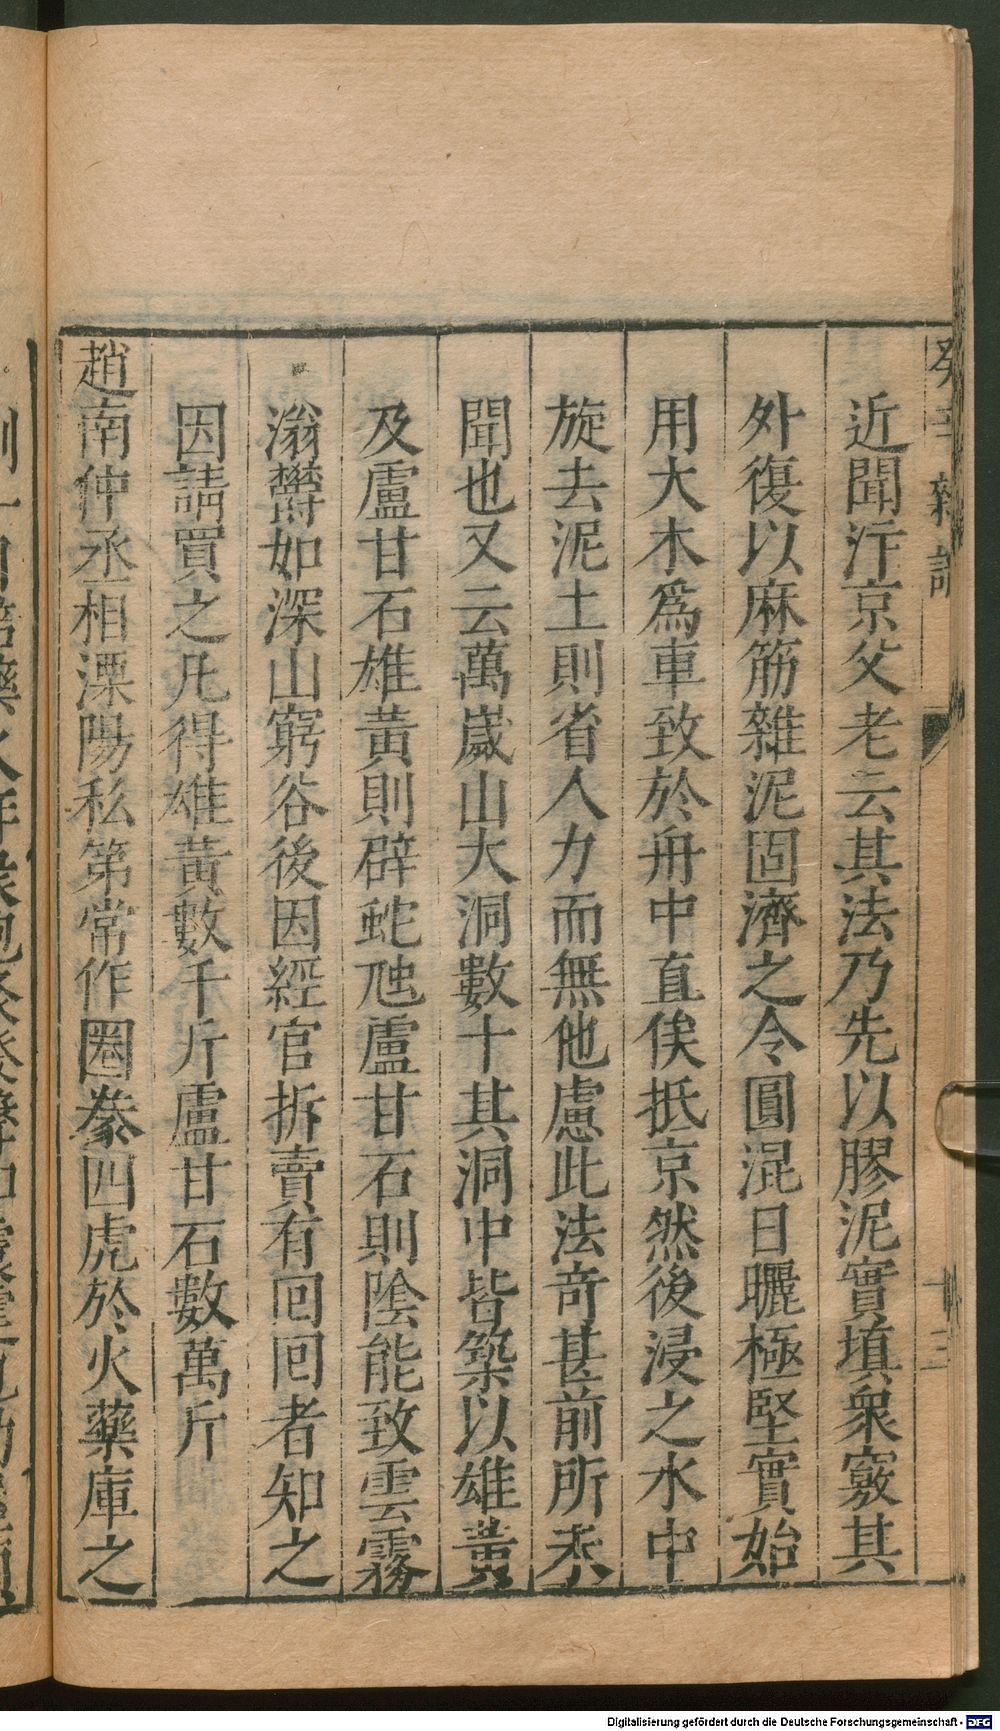 近聞汴京父老云其法乃先以膠泥實填衆竅其
外復以麻筋雜泥固濟之令圓混日曬極堅實始
用大木爲車致於舟中直俟抵京然後浸之水中
旋去泥土則省人力而無他慮此法奇甚前所未
聞也又云萬歲山大洞數十其洞中皆築以雄黃
及盧甘石雄黃則辟蛇虺盧甘石則陰能致雲霧
滃欝如深山窮谷後因經官拆賣有回回者知之
因請買之凡得雄黃數千斤盧甘石數萬斤
趙南仲丞相溧陽私第常作圈豢四虎於火藥庫之
Digitalisierung gefördert durch die Deutsche Forschungsgemeinschaft - DFG